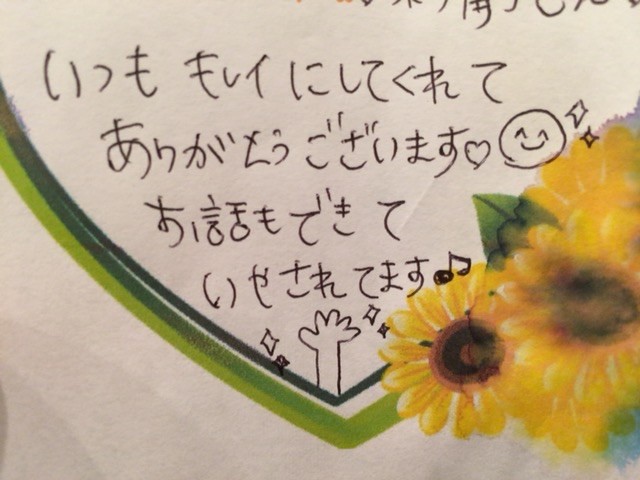 いつも キレイ にしてくれて
ありがとうございます♡
お話もできて
いやされてます♪